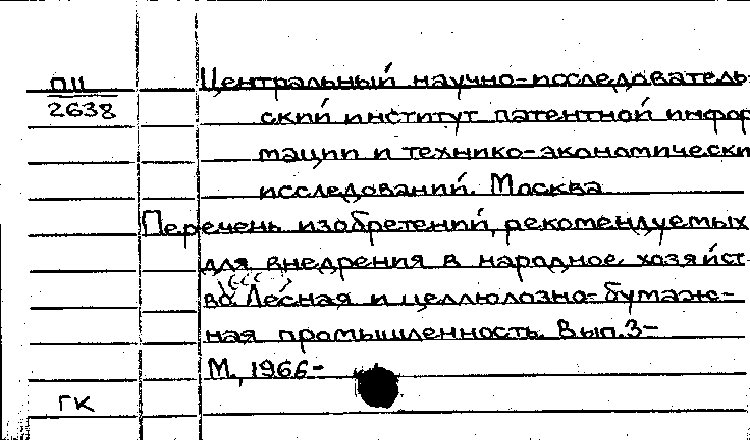 П11 Центральный научно-исследователь-
2638 ский институт патентной инфор
мации и технико-экономически
исследований. Москва
Перечень изобретений, рекомендуемых
для внедрения в народное хозяйст-
во Лесная и целлюлозно-бумаж-
ная промышленность. Вып.3-
М., 1966-
ГК